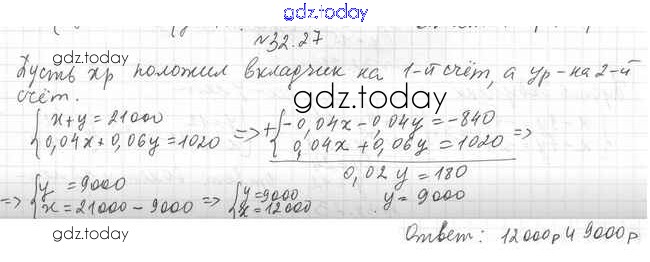 gdz.today
№32.27
gdz.today
Пусть xр положил вкладчик на 1-й счёт, а yр - на 2-й
счёт.
gdz.today
{x+y=21000
0,04x+0,06y=1020 => +{-0,04x-0,04y=-840
0,04x+0,06y=1020 =>
0,02y=180
y=9000
=> {y=9000
x=21000-9000 => {y=9000
x=12000
gdz.today
gdz.today
Ответ: 12000р и 9000р
gdz.today